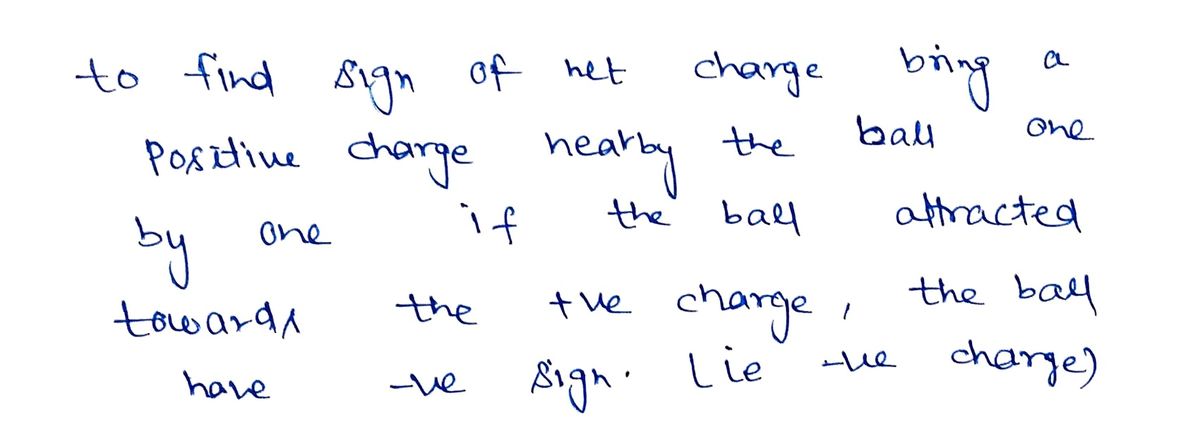 to find sign of net charge bring a
Positive charge nearby the ball one
by one if the ball attracted
towards the +ve charge, the ball
have -ve sign. (ie -ve charge)